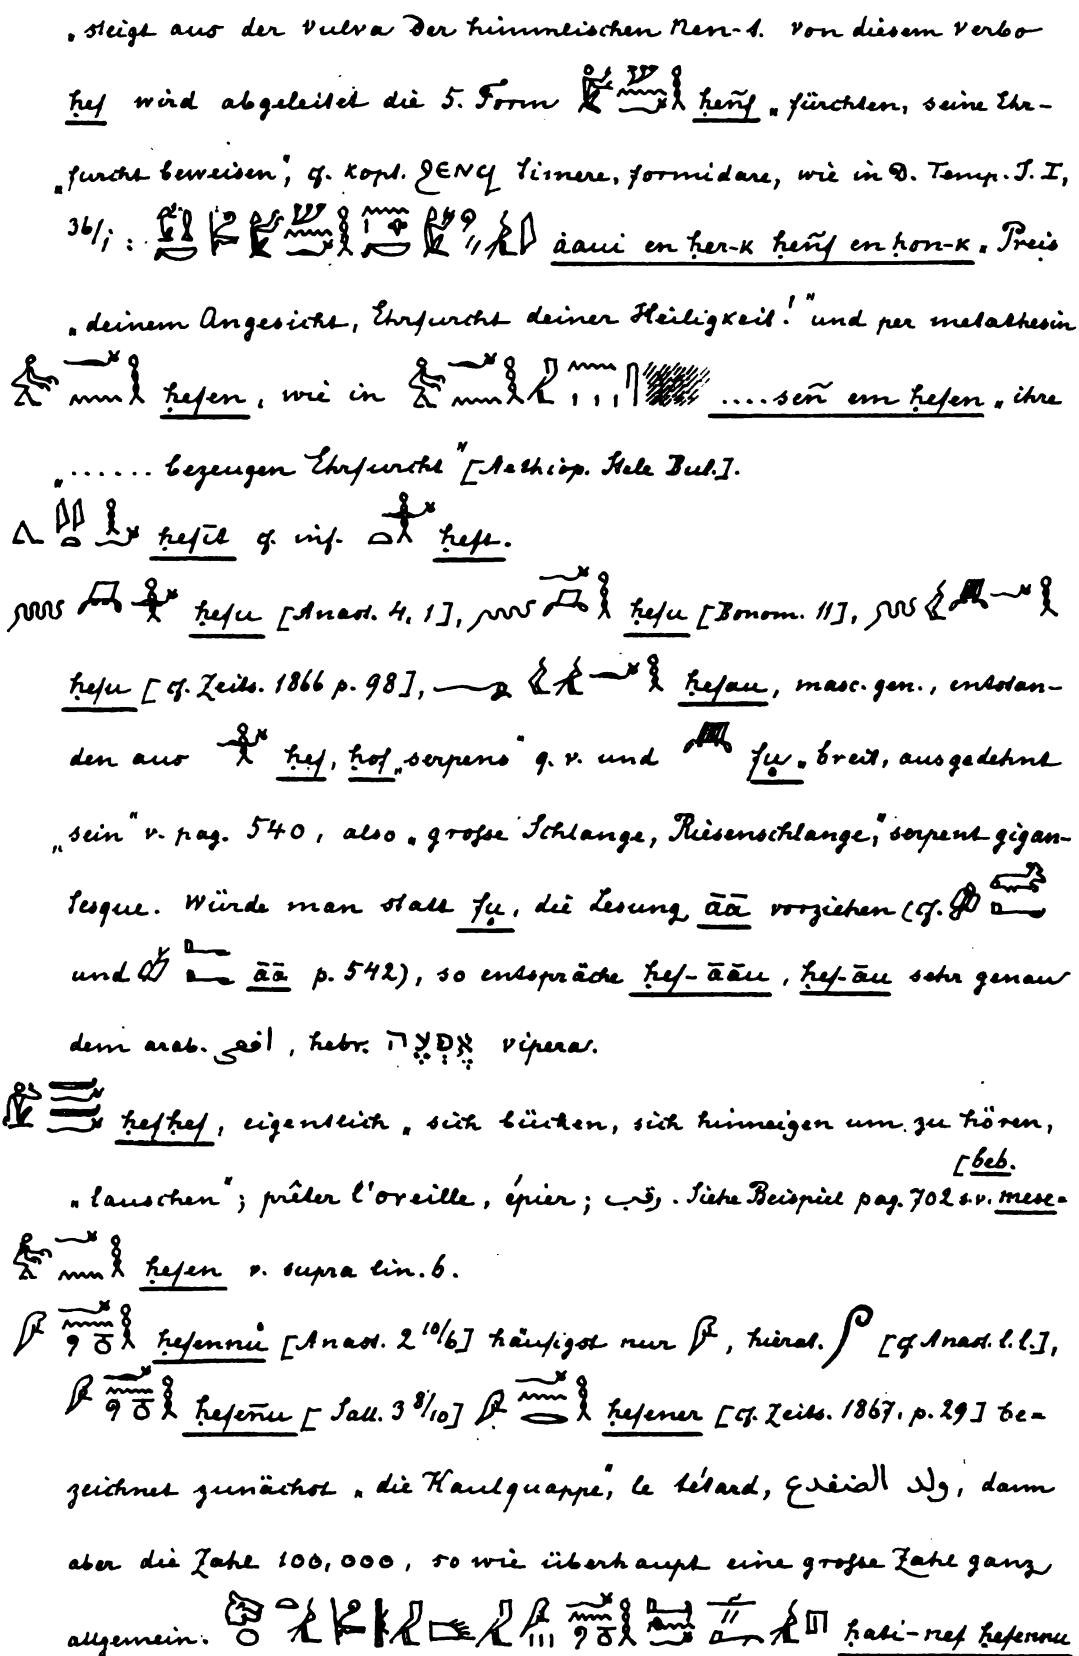 „steigt aus der Vulva der himmlischen Nen-t. Von diesem Verbo
ḥef wird abgeleitet die 5. Form ḥeñf „fürchten, seine Ehr-
„furcht beweisen“, cf. kopt. ϩⲉⲛϥ timere, formidare, wie in D. Temp. I. I,
36/1: àaui en ḥer-k ḥeñf en ḥon-k „Preis
„deinem Angesicht, Ehrfurcht deiner Heiligkeit!“ und per metathesin
ḥefen, wie in ....señ em ḥefen „ihre
„...... bezeugen Ehrfurcht“ [Aethiop. Stele Bul.].
ḥefīt cf. inf. ḥeft.
ḥefu [Anast. 4, 1], ḥefu [Bonom. 11],
ḥefu [cf. Zeits. 1866 p. 98], ḥefau, masc. gen., entstan-
den aus ḥef, ḥof „serpens“ q. v. und fu̥ „breit, ausgedehnt
„sein“ v. pag. 540, also „grosse Schlange, Riesenschlange“, serpent gigan-
tesque. Würde man statt fu̥, die Lesung āā vorziehen (cf.
und āā p. 542), so entspräche ḥef-āāu, ḥef-āu sehr genau
dem arab. افعى, hebr. אֶפְעֶה vipera.
ḥefḥef, eigentlich „sich bücken, sich hinneigen um zu hören,
[beb.
„lauschen“; prêter l'oreille, épier; رقب. Siehe Beispiel pag. 702 s.v. mese=
ḥefen v. supra lin. 6.
ḥefennu̇ [Anast. 2 10/6] häufigst nur , hierat. [cf Anast. l. l.],
ḥefeñu [Sall. 3 8/10] ḥefener [cf. Zeits. 1867. p. 29] be=
zeichnet zunächst „die Kaulquappe“, le têtard, ولد الضفدع, dann
aber die Zahl 100,000, so wie überhaupt eine grosse Zahl ganz
allgemein. ḥati-nef ḥefennu